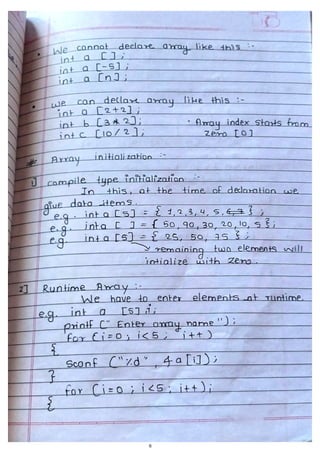 • We cannot declare array like this :-
int a [ ] ;
int a [-5] ;
int a [n] ;
• we can declare array like this :-
int a [2+2] ;
int b [3*2] ; • Array index starts from
int c [10/2] ; zero [0]
Array initialization :-
1] compile type initialization :-
In this, at the time of declaration we
give data items.
e.g. int a [5] = { 1,2,3,4,5 } ;
e.g. int a [ ] = { 50,90,30,20,10,5 } ;
e.g. int a [5] = { 25, 50, 75 } ;
remaining two elements will
intialize with zero.
2] Runtime Array :-
We have to enter elements at runtime.
e.g. int a [5], i ;
printf (" Enter array name ") ;
for ( i=0 ; i<5 ; i++ )
{
Scanf ("%d" , &a[i]) ;
}
for ( i=0 ; i<5 ; i++ ) ;
{
6